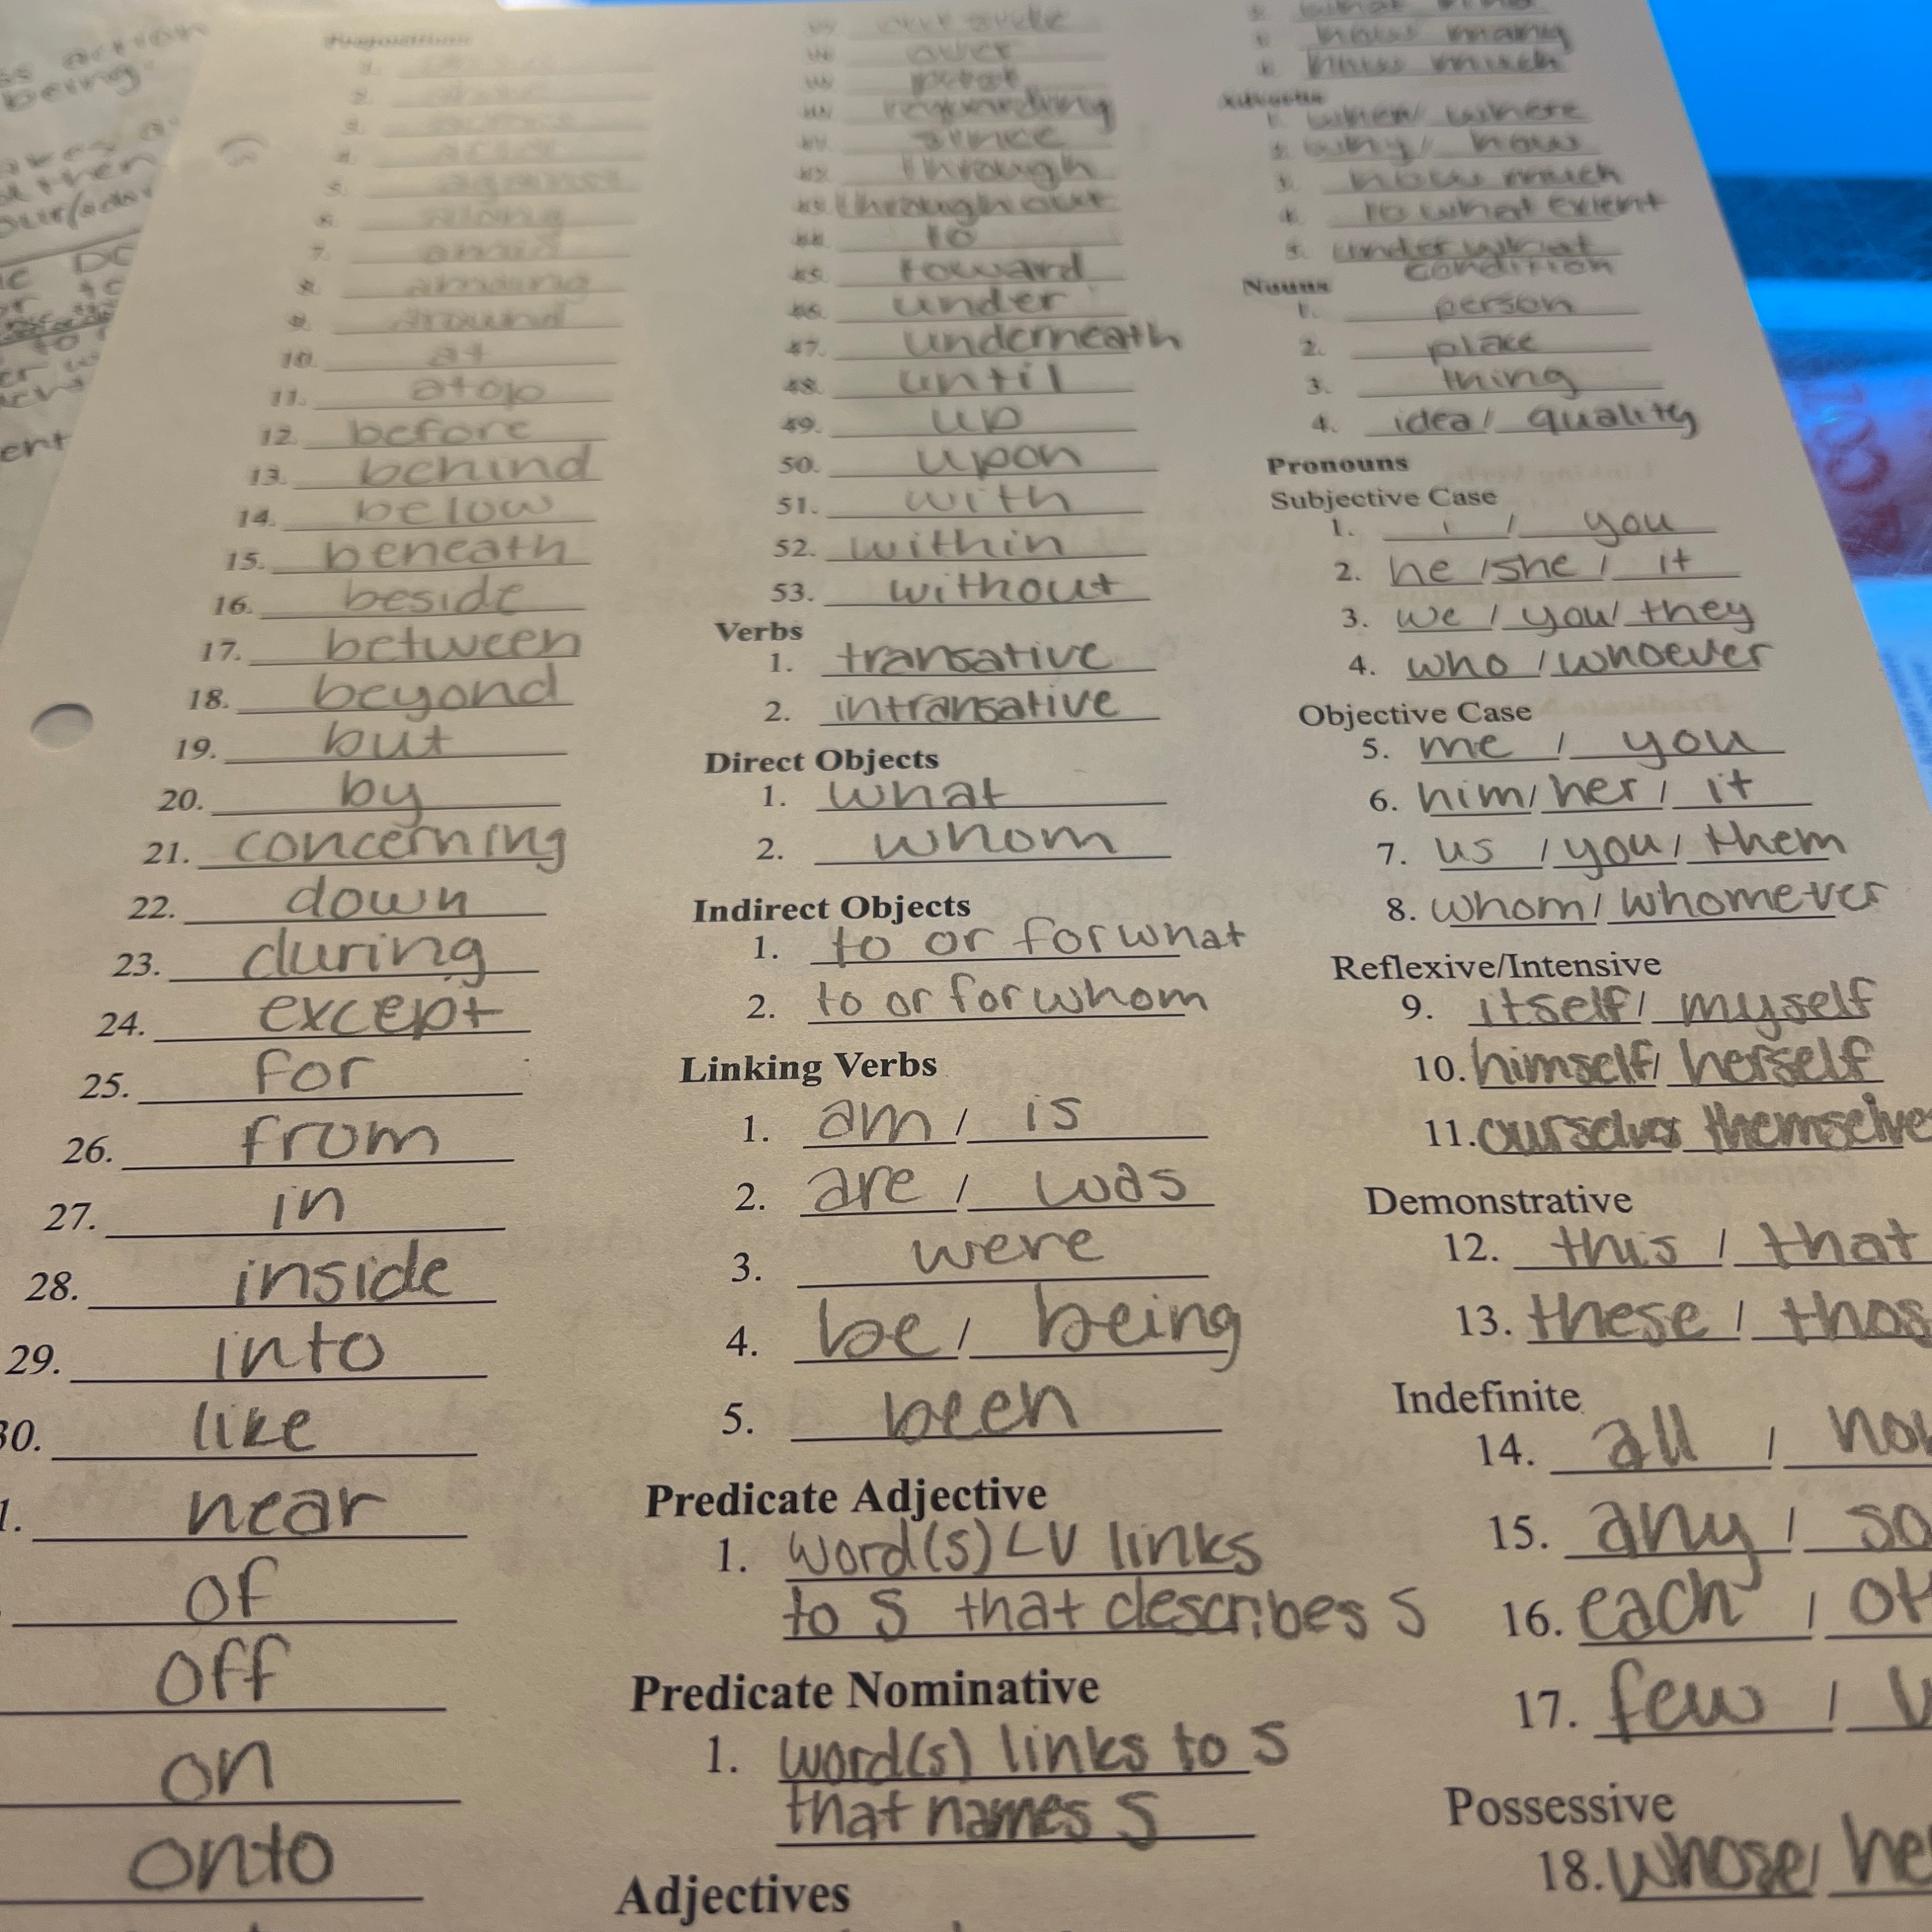 being
Prepositions
5. against
6. along
7. amid
8. among
9. around
10. at
11. atop
12. before
13. behind
14. below
15. beneath
16. beside
17. between
18. beyond
19. but
20. by
21. concerning
22. down
23. during
24. except
25. for
26. from
27. in
28. inside
29. into
30. like
1. near
of
off
on
onto
outside
over
past
regarding
since
through
throughout
to
45. toward
46. under
47. underneath
48. until
49. up
50. upon
51. with
52. within
53. without
Verbs
1. transative
2. intransative
Direct Objects
1. what
2. whom
Indirect Objects
1. to or for what
2. to or for whom
Linking Verbs
1. am / is
2. are / was
3. were
4. be / being
5. been
Predicate Adjective
1. word(s) LV links
to S that describes S
Predicate Nominative
1. word(s) links to S
that names S
Adjectives
what kind
how many
how much
Adverbs
1. when / where
2. why / how
3. how much
4. to what extent
5. under what
condition
Nouns
1. person
2. place
3. thing
4. idea / quality
Pronouns
Subjective Case
1. i / you
2. he / she / it
3. we / you / they
4. who / whoever
Objective Case
5. me / you
6. him / her / it
7. us / you / them
8. whom / whomever
Reflexive/Intensive
9. itself / myself
10. himself / herself
11. ourselves themselve
Demonstrative
12. this / that
13. these / thos
Indefinite
14. all /
15. any / so
16. each / ot
17. few /
Possessive
18. whose / he